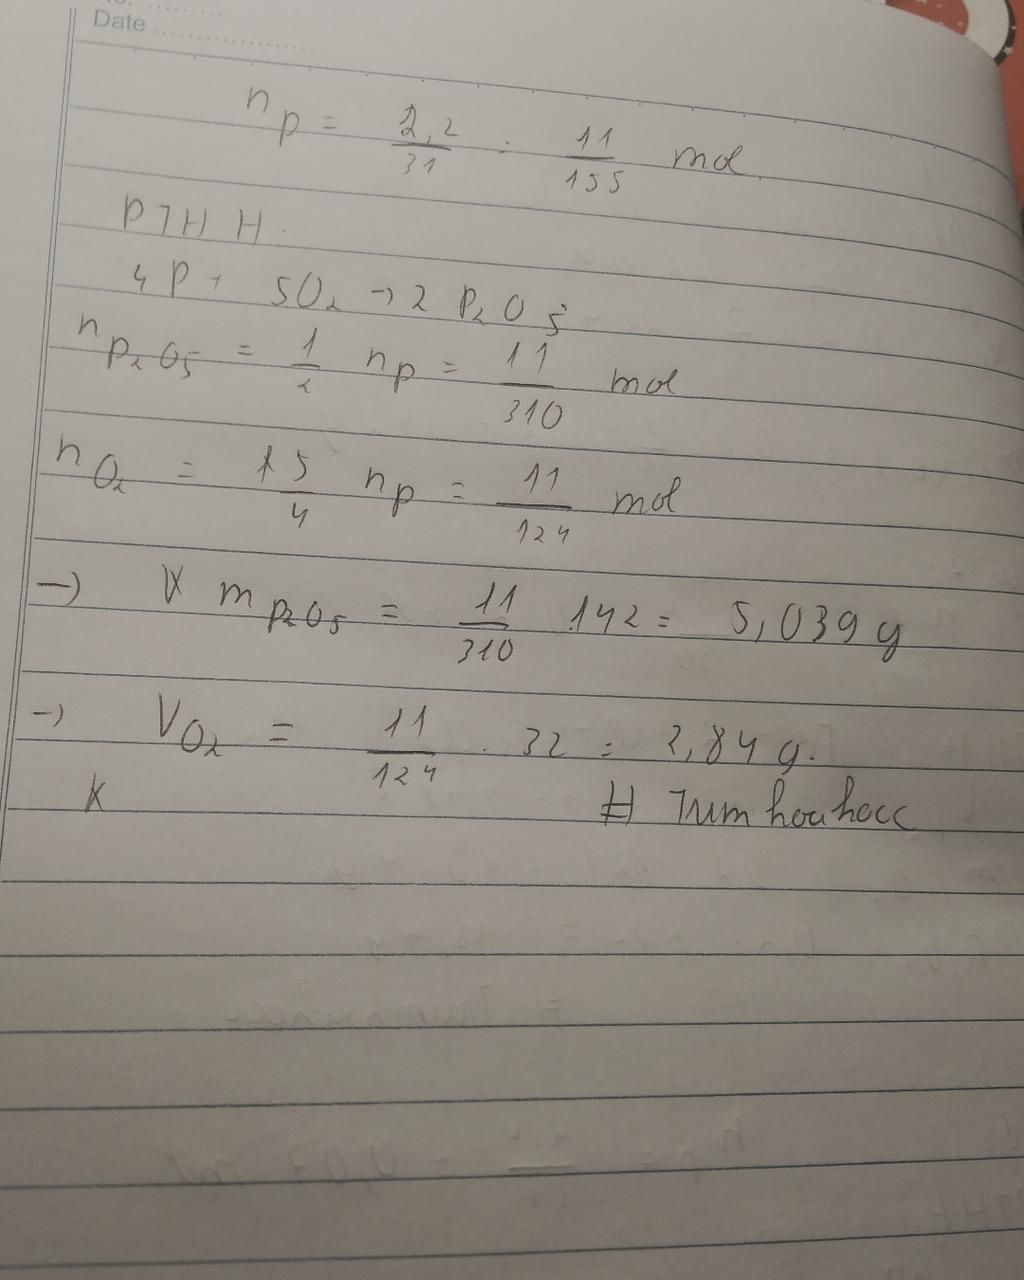 Date
n_P = 2,2/31 = 11/155 mol
PTHH.
4P + 5O₂ → 2P₂O₅
n_P₂O₅ = 1/2 n_P = 11/310 mol
n_O₂ = 5/4 n_P = 11/124 mol
→ m_P₂O₅ = 11/310 . 142 = 5,039 g
→ V_O₂ = 11/124 . 32 = 2,84 g.
# Tumhoahocc